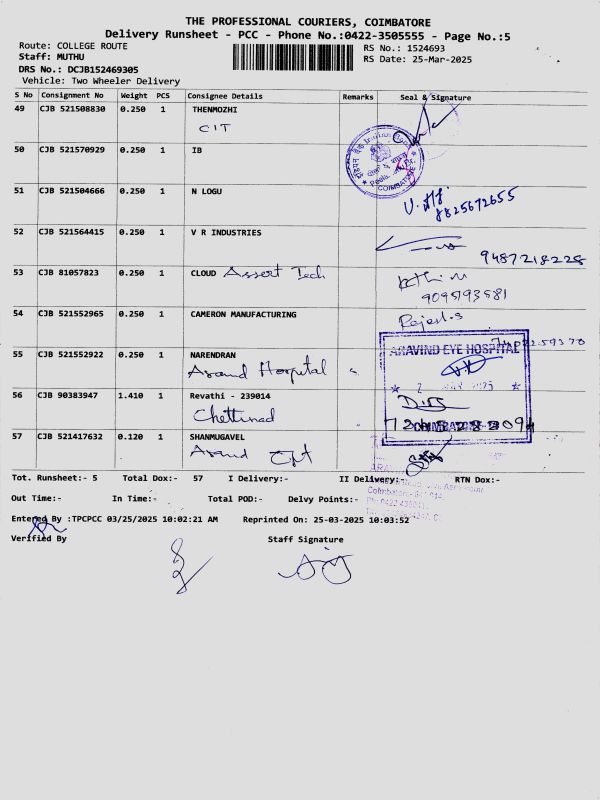 THE PROFESSIONAL COURIERS, COIMBATORE
Delivery Runsheet - PCC - Phone No.:0422-3505555 - Page No.:5
Route: COLLEGE ROUTE
RS No.: 1524693
Staff: MUTHU
RS Date: 25-Mar-2025
DRS No.: DCJB152469305
Vehicle: Two Wheeler Delivery
S No Consignment No Weight PCS Consignee Details Remarks Seal & Signature
49 CJB 521508830 0.250 1 THENMOZHI
CIT
50 CJB 521570929 0.250 1 IB
COIMBATORE
51 CJB 521504666 0.250 1 N LOGU
8825672655
52 CJB 521564415 0.250 1 V R INDUSTRIES
9487218228
53 CJB 81057823 0.250 1 CLOUD Assert Tech
9095193581
54 CJB 521552965 0.250 1 CAMERON MANUFACTURING
55 CJB 521552922 0.250 1 NARENDRAN
ARAVIND EYE HOSPITAL
Hospital
56 CJB 90383947 1.410 1 Revathi - 239014
Chettinad
57 CJB 521417632 0.120 1 SHANMUGAVEL
Tot. Runsheet:- 5 Total Dox:- 57 I Delivery:- II Delivery:- RTN Dox:-
Out Time:- In Time:- Total POD:- Delvy Points:-
Entered By :TPCPCC 03/25/2025 10:02:21 AM Reprinted On: 25-03-2025 10:03:52
Verified By Staff Signature